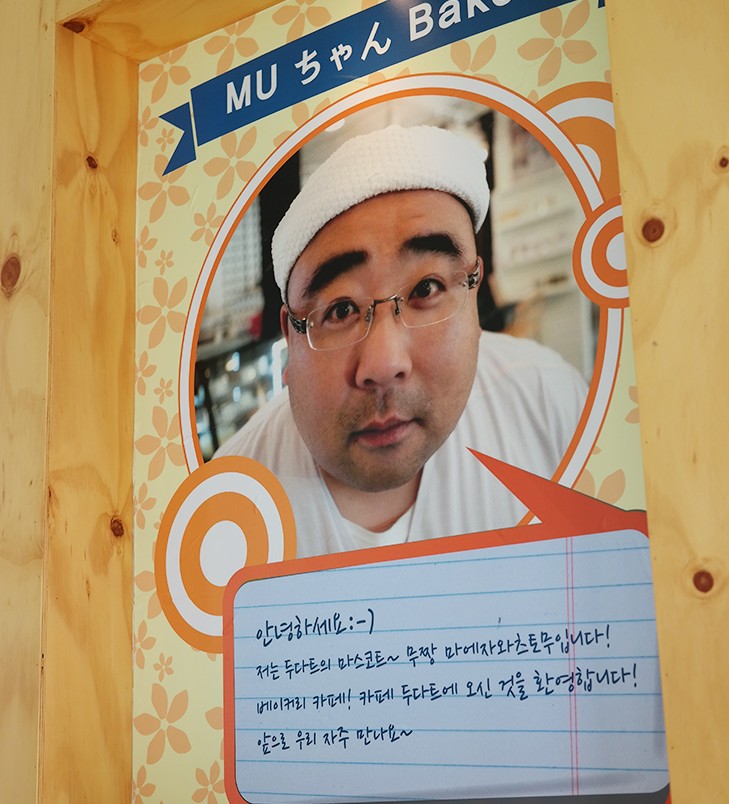 MU ちゃん Bake
안녕하세요:-)
저는 두다트의 마스코트~ 무짱 마에자와츠토무입니다!
베이커리 카페! 카페 두다트에 오신 것을 환영합니다!
앞으로 우리 자주 만나요~